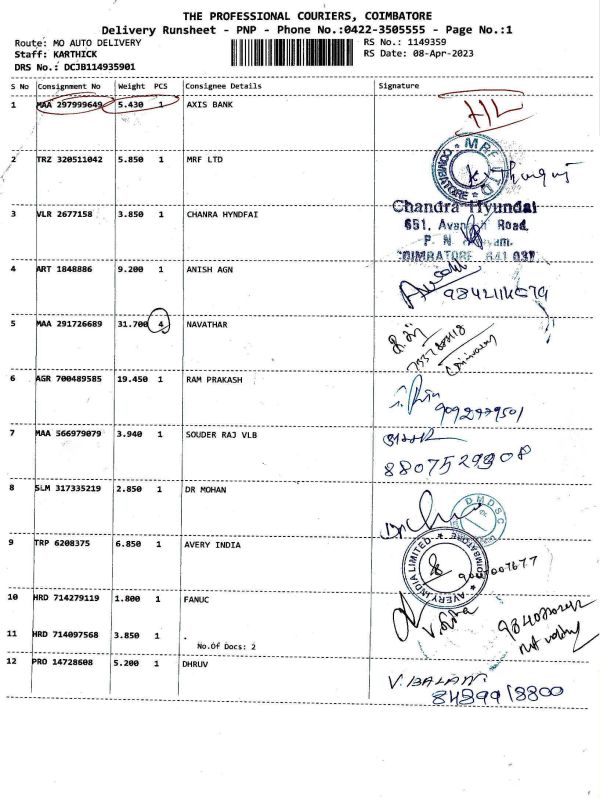 THE PROFESSIONAL COURIERS, COIMBATORE
Delivery Runsheet - PNP - Phone No.:0422-3505555 - Page No.:1
Route: MO AUTO DELIVERY RS No.: 1149359
Staff: KARTHICK RS Date: 08-Apr-2023
DRS No.: DCJB114935901
S No Consignment No Weight PCS Consignee Details Signature
1 MAA 297999649 5.430 1 AXIS BANK
2 TRZ 320511042 5.850 1 MRF LTD
MRF LTD COIMBATORE
3 VLR 2677158 3.850 1 CHANRA HYNDFAI
Chandra Hyundai
651, Road,
P. N
COIMBATORE 641 037
4 ART 1848886 9.200 1 ANISH AGN
5 MAA 291726689 31.700 4 NAVATHAR
6 AGR 700489585 19.450 1 RAM PRAKASH
7 MAA 566979079 3.940 1 SOUDER RAJ VLB
8807529908
8 SLM 317335219 2.850 1 DR MOHAN
DMDSC
9 TRP 6208375 6.850 1 AVERY INDIA
AVERY INDIA LIMITED COIMBATORE
10 HRD 714279119 1.800 1 FANUC
11 HRD 714097568 3.850 1
No.Of Docs: 2
12 PRO 14728608 5.200 1 DHRUV
V. BALAN